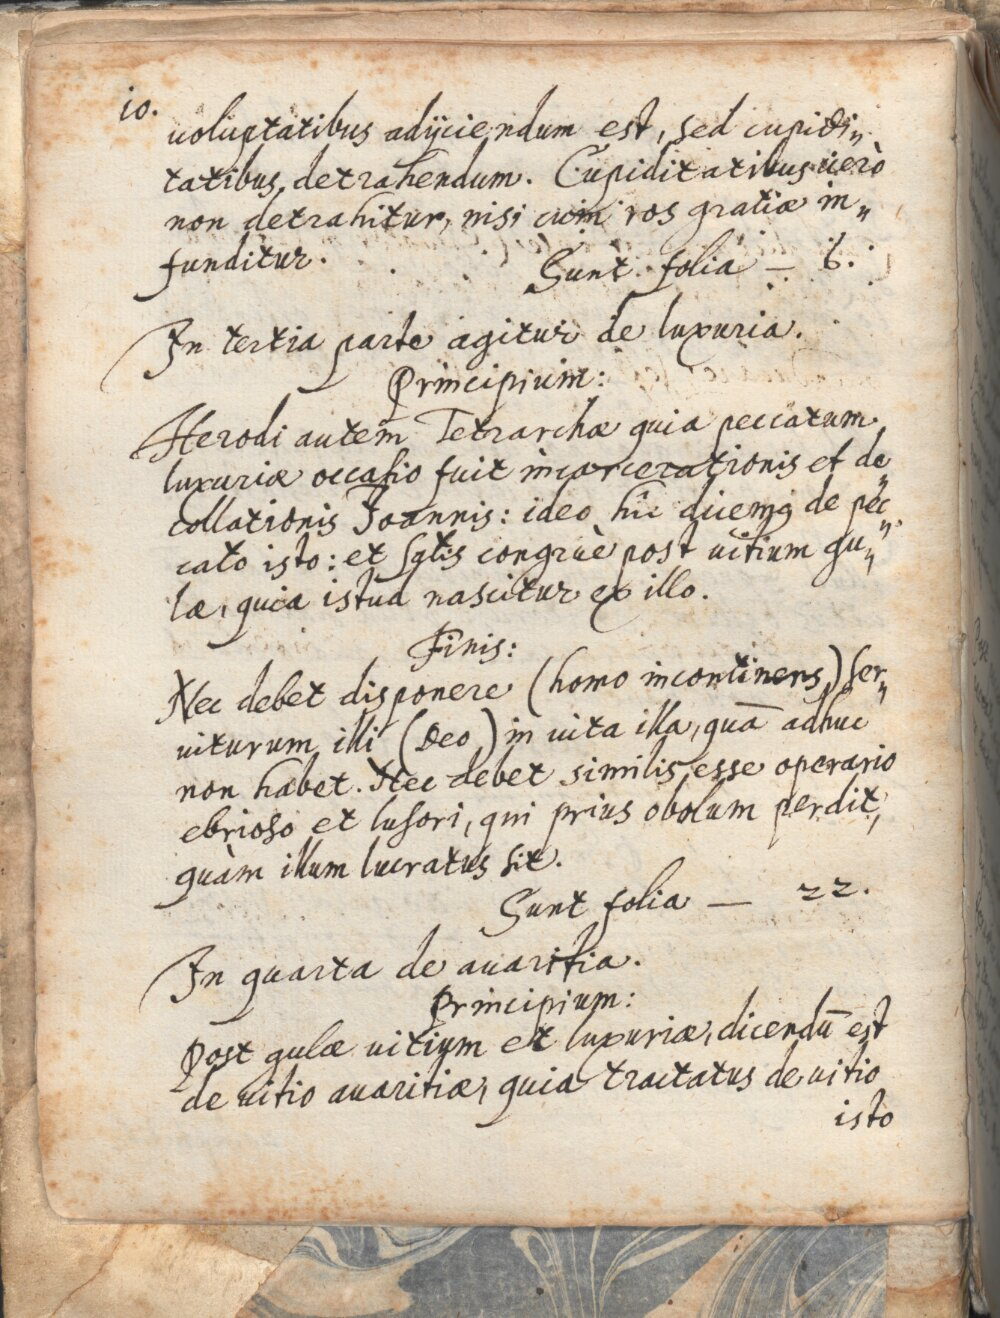 10.
uoluptatibus adijciendum est, sed cupidi„
tatibus detrahendum. Cupiditatibus uerò
non detrahitur, nisi cum ros gratiæ in„
funditur.
Sunt folia — 6.
In tertia parte agitur de luxuria.
Principium:
Herodi autem Tetrarchæ quia peccatum
luxuriæ occasio fuit incarcerationis et de„
collationis Joannis: ideo hic dicemq de pec„
cato isto: et satis congruè post uitium gu„
læ, quia istud nascitur ex illo.
Finis:
Nec debet disponere (homo incontinens) ser„
uiturum illi (Deo) in uita illa, quā adhuc
non habet. Nec debet similis esse operario
ebrioso et lusori, qui prius obolum perdit,
quàm illum lucratus sit.
Sunt folia — 22.
In quarta de auaritia.
Principium:
Post gulæ uitium et luxuriæ, dicendū est
de uitio auaritiæ, quia tractatus de uitio
isto